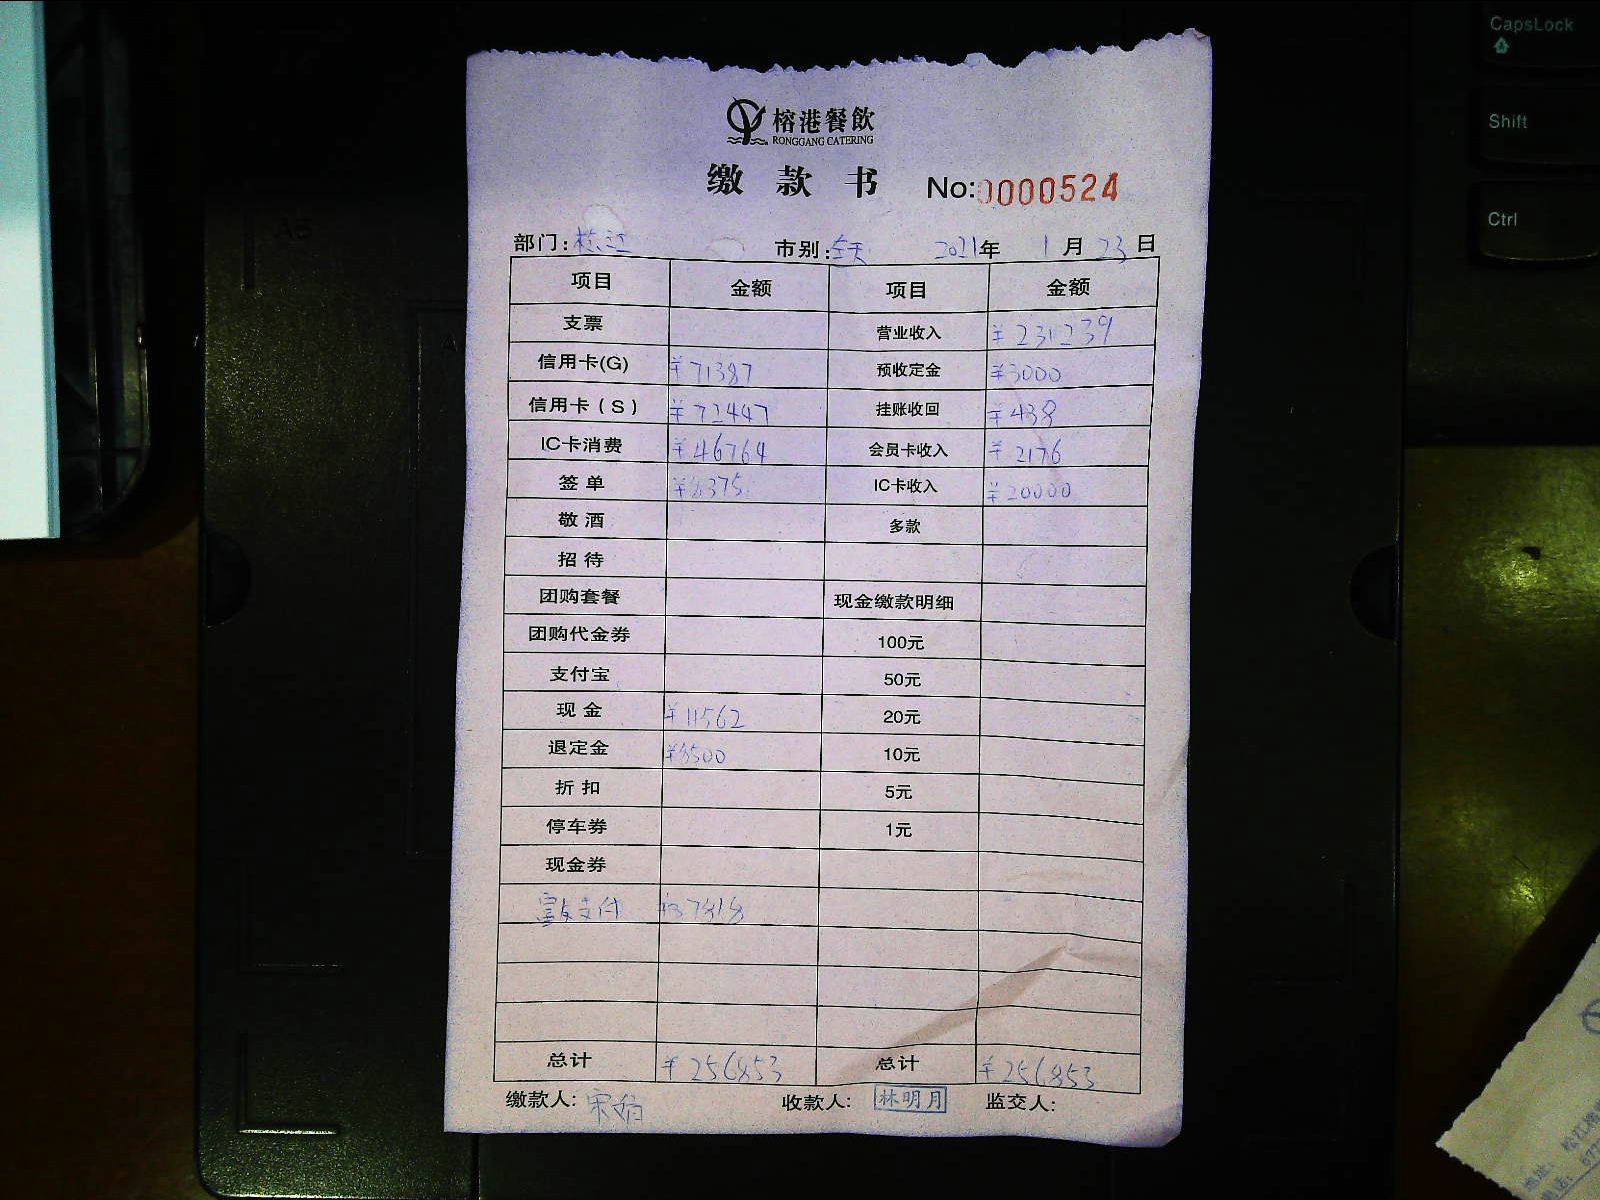 榕港餐飲
RONGGANG CATERING
缴款书 No:0000524
部门:松江 市别:全天 2021年1月23日
项目 金额 项目 金额
支票 营业收入 ¥231239
信用卡(G) ¥71387 预收定金 ¥3000
信用卡(S) ¥72447 挂账收回 ¥438
IC卡消费 ¥46764 会员卡收入 ¥2176
签单 ¥8375 IC卡收入 ¥20000
敬酒 多款
招待
团购套餐 现金缴款明细
团购代金券 100元
支付宝 50元
现金 ¥11562 20元
退定金 ¥8500 10元
折扣 5元
停车券 1元
现金券
富友支付 ¥37818
总计 ¥256853 总计 ¥256853
缴款人:宋娟 收款人:林明月 监交人:
CapsLock
Shift
Ctrl